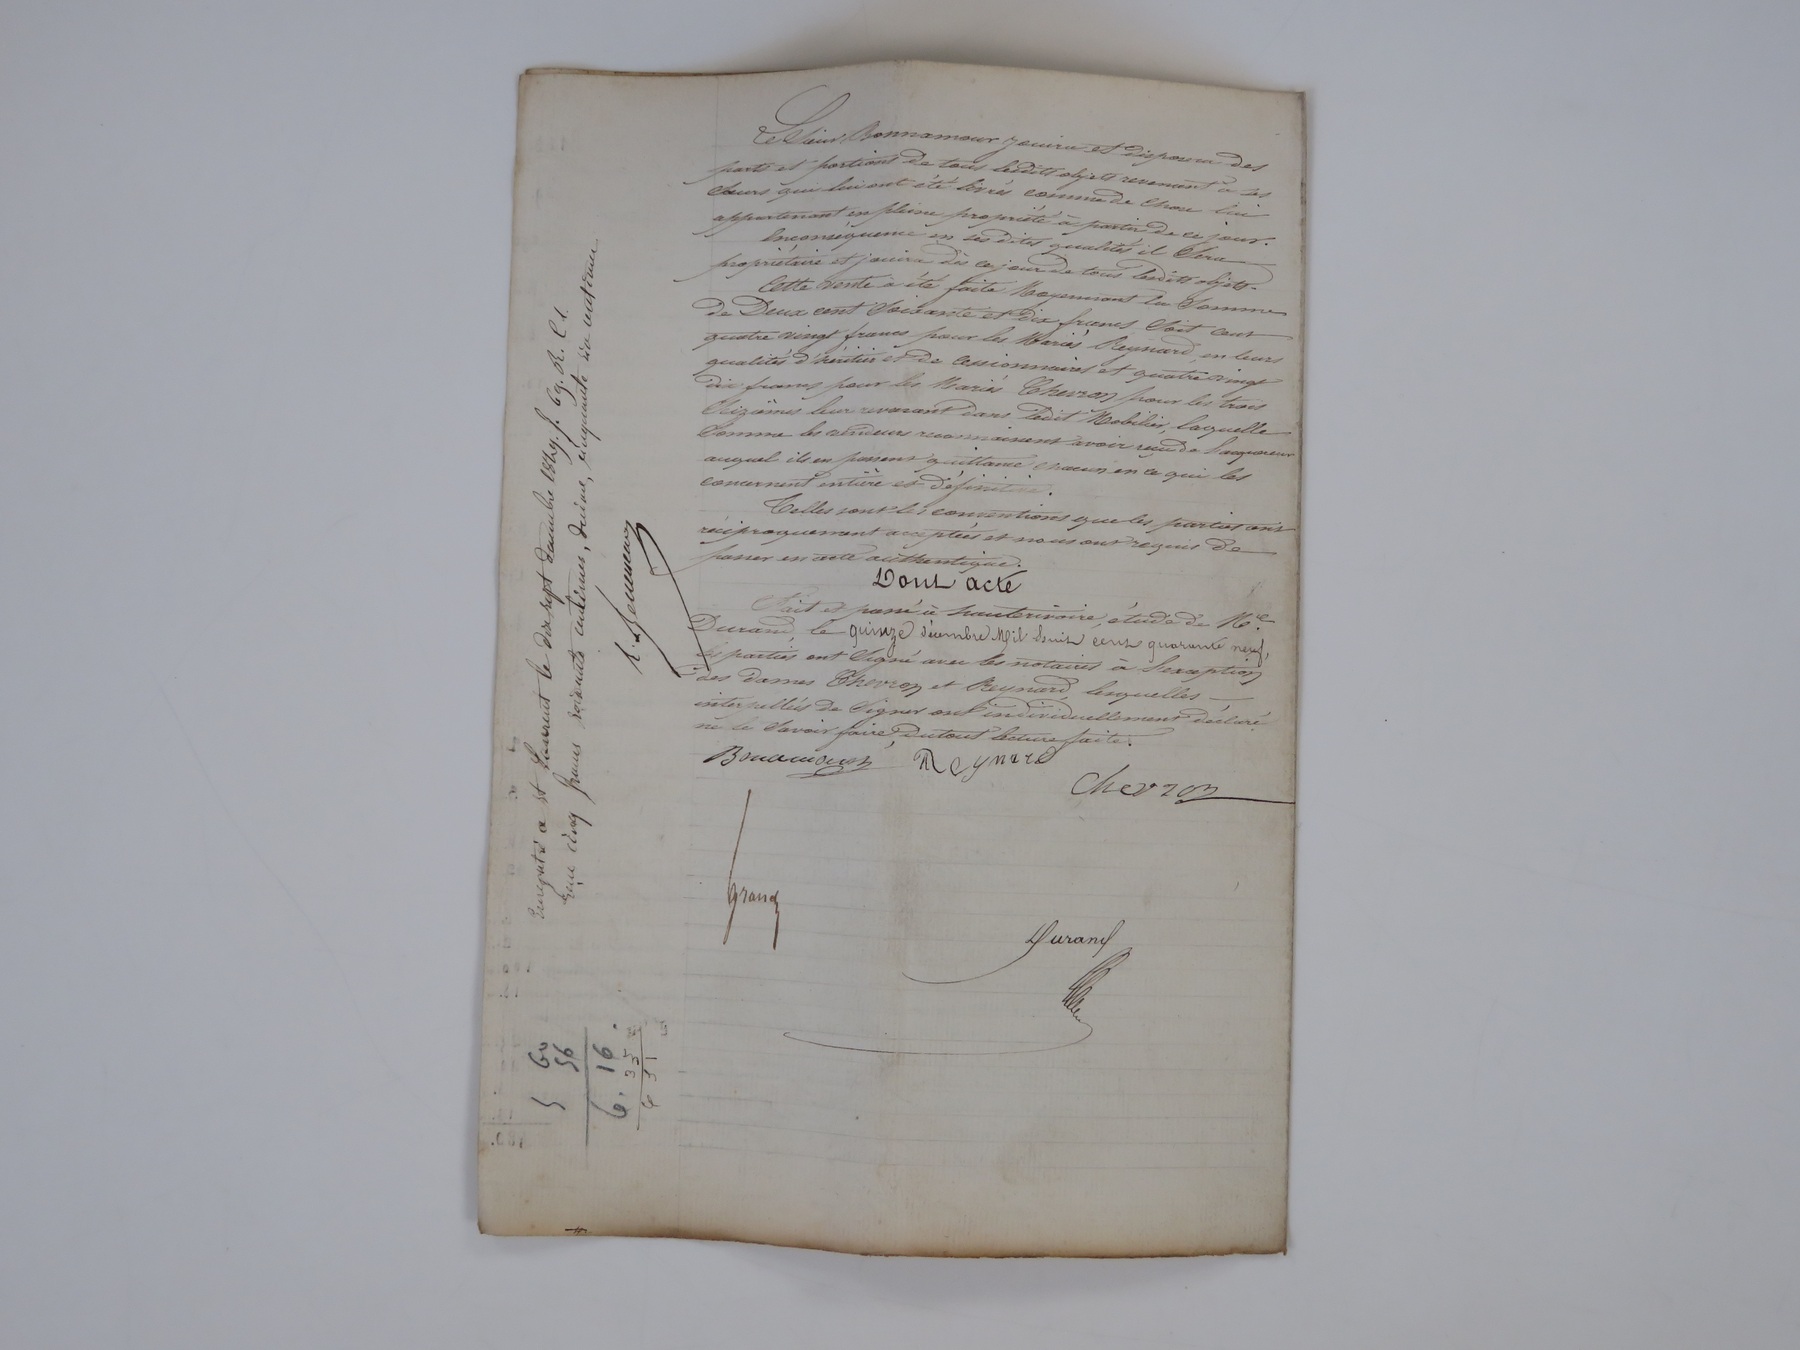 Le Sieur Bonnamour jouira et disposera des
parts et portions de tous lesdits objets revenant à ses
Sœurs qui lui ont été livrés comme de chose lui
appartenant en pleine propriété à partir de ce jour.
Enconséquence en ses dites qualités il Sera
propriétaire et jouira dès ce jour de tous lesdits objets.
Cette vente a été faite Moyennant la Somme
de Deux cent Soixante et dix francs, Soit cent
quatre vingt francs pour les Mariés Reynard, en leurs
qualités d'héritier et de cessionnaires et quatre vingt
dix francs pour les Mariés Chevron pour les trois
Sixièmes leur revenant dans ledit Mobilier, laquelle
Somme les vendeurs reconnaissent avoir reçu de l'acquéreur
auquel ils en passent quittance chacun en ce qui les
concernent entière et définitive.
Telles sont les conventions que les parties ont
réciproquement acceptées et nous ont requis de
passer en acte authentique.
Dont acte
Fait et passé à hauterivoire, étude de Me
Durand, le quinze décembre Mil huit cent quarante neuf,
les parties ont Signé avec les notaires à l'exception
des dames Chevron et Reynard, lesquelles
interpellées de Signer ont individuellement déclaré
ne le Savoir faire, du tout lecture faite.
Bonamour Reynard
Chevron
grand
Durand
Enregistré à St Laurent le dix sept décembre 1849. f. 69. R. C. 1.
Reçu cinq francs soixante centimes, décime, cinquante six centimes
5 60
56
6. 16